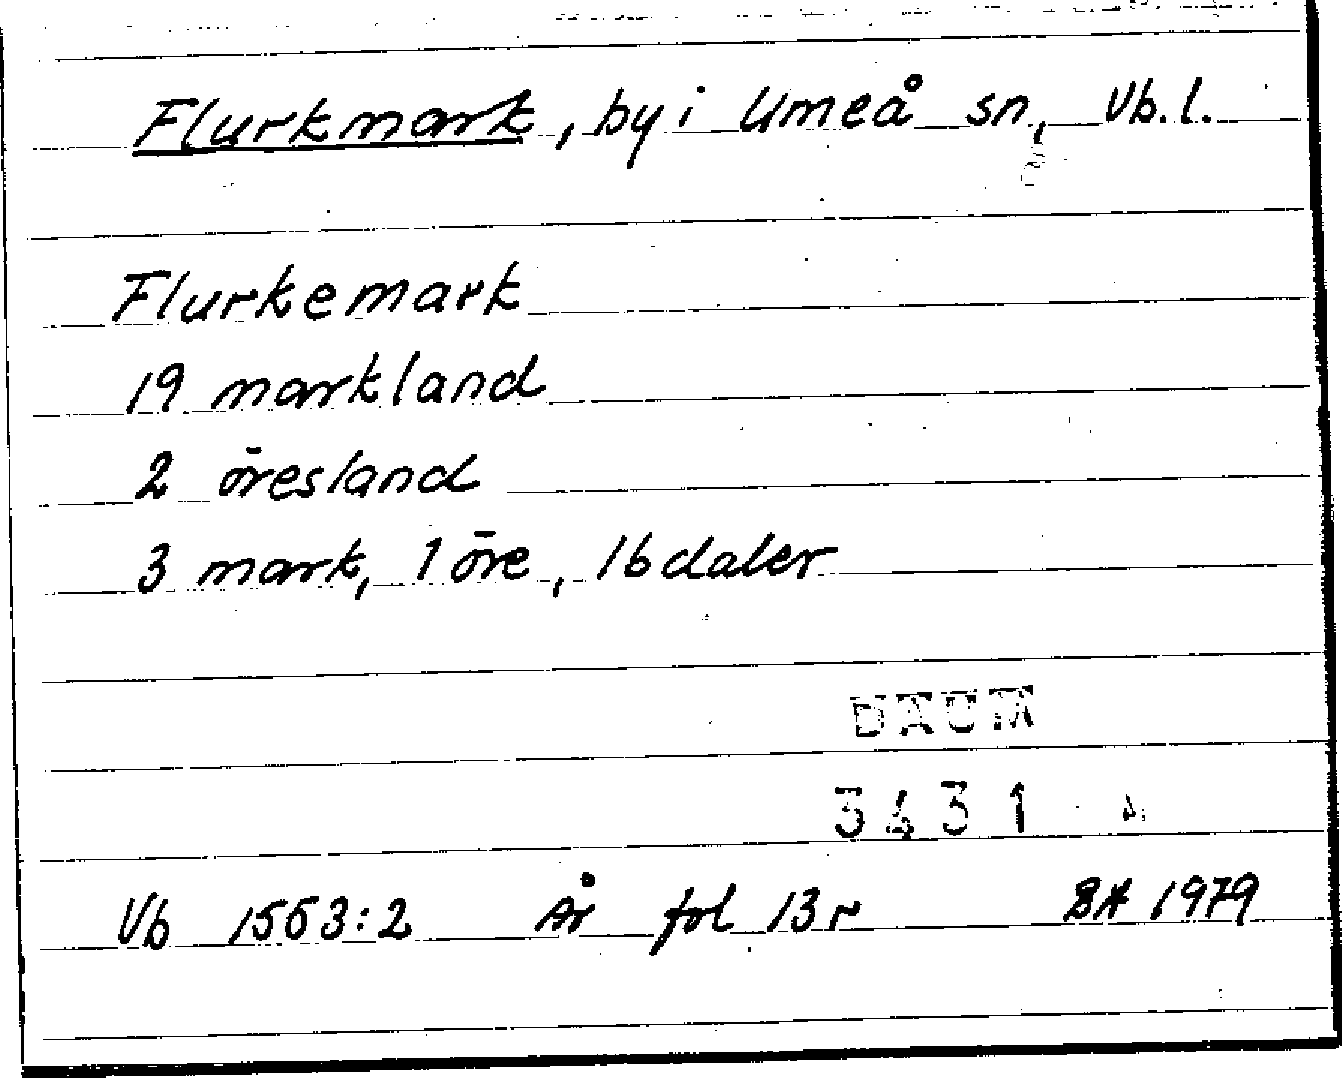 Flurkmark, by i Umeå sn, Vb. l.
Flurkemark
19 markland
2 öresland
3 mark, 1 öre, 16 daler
DAUM
3431
Vb 1553:2 År fol 13r BA 1979